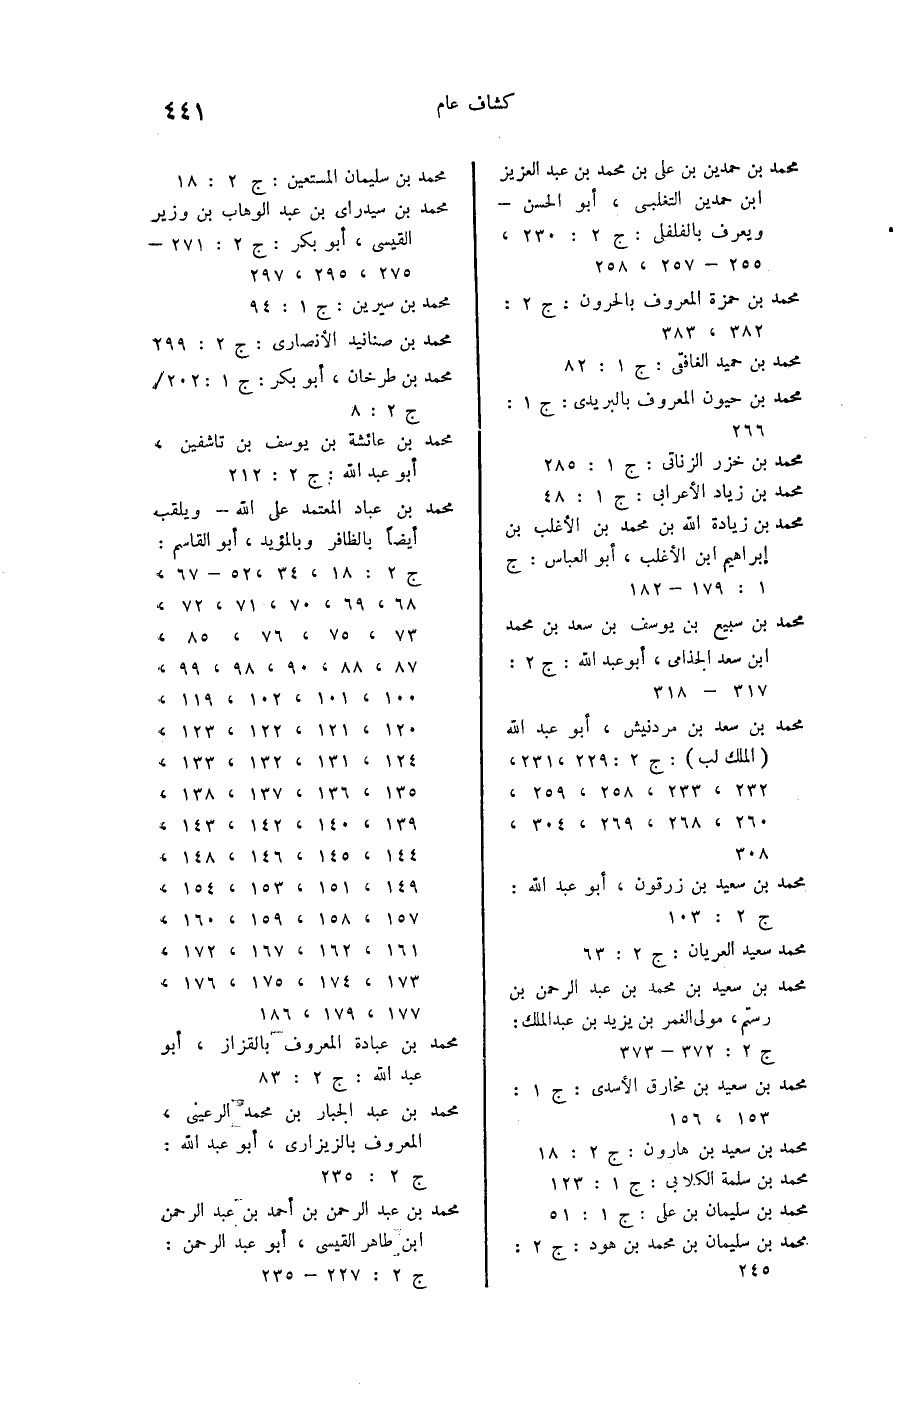 كشاف عام
٤٤١
محمد بن حمدين بن على بن محمد بن عبد العزيز
ابن حمدين التغلبى ، أبو الحسن –
ويعرف بالفلفلى : ج ٢ : ٢٣٠ ،
٢٥٥ – ٢٥٧ ، ٢٥٨
محمد بن حمزة المعروف بالحرون : ج ٢ :
٣٨٢ ، ٣٨٣
محمد بن حميد الغافقى : ج ١ : ٨٢
محمد بن حيون المعروف بالبريدى : ج ١ :
٢٦٦
محمد بن خزر الزناتى : ج ١ : ٢٨٥
محمد بن زياد الأعرابى : ج ١ : ٤٨
محمد بن زيادة الله بن محمد بن الأغلب بن
إبراهيم ابن الأغلب ، أبو العباس : ج
١ : ١٧٩ – ١٨٢
محمد بن سبيع بن يوسف بن سعد بن محمد
ابن سعد الجذامى ، أبو عبد الله : ج ٢ :
٣١٧ – ٣١٨
محمد بن سعد بن مردنيش ، أبو عبد الله
( الملك لب ) : ج ٢ : ٢٢٩ ، ٢٣١ ،
٢٣٢ ، ٢٣٣ ، ٢٥٨ ، ٢٥٩ ،
٢٦٠ ، ٢٦٨ ، ٢٦٩ ، ٣٠٤ ،
٣٠٨
محمد بن سعيد بن زرقون ، أبو عبد الله :
ج ٢ : ١٠٣
محمد سعيد العريان : ج ٢ : ٦٣
محمد بن سعيد بن محمد بن عبد الرحمن بن
رستم ، مولى الغمر بن يزيد بن عبد الملك :
ج ٢ : ٣٧٢ – ٣٧٣
محمد بن سعيد بن مخارق الأسدى : ج ١ :
١٥٣ ، ١٥٦
محمد بن سعيد بن هارون : ج ٢ : ١٨
محمد بن سلمة الكلابى : ج ١ : ١٢٣
محمد بن سليمان بن على : ج ١ : ٥١
محمد بن سليمان بن محمد بن هود : ج ٢ :
٢٤٥
محمد بن سليمان المستعين : ج ٢ : ١٨
محمد بن سيدراى بن عبد الوهاب بن وزير
القيسى ، أبو بكر : ج ٢ : ٢٧١ –
٢٧٥ ، ٢٩٥ ، ٢٩٧
محمد بن سيرين : ج ١ : ٩٤
محمد بن صنانيد الأنصارى : ج ٢ : ٢٩٩
محمد بن طرخان ، أبو بكر : ج ١ : ٢٠٢ /
ج ٢ : ٨
محمد بن عائشة بن يوسف بن تاشفين ،
أبو عبد الله : ج ٢ : ٢١٢
محمد بن عباد المعتمد على الله – ويلقب
أيضاً بالظافر وبالمؤيد ، أبو القاسم :
ج ٢ : ١٨ ، ٣٤ ، ٥٢ – ٦٧ ،
٦٨ ، ٦٩ ، ٧٠ ، ٧١ ، ٧٢ ،
٧٣ ، ٧٥ ، ٧٦ ، ٨٥ ،
٨٧ ، ٨٨ ، ٩٠ ، ٩٨ ، ٩٩ ،
١٠٠ ، ١٠١ ، ١٠٢ ، ١١٩ ،
١٢٠ ، ١٢١ ، ١٢٢ ، ١٢٣ ،
١٢٤ ، ١٣١ ، ١٣٢ ، ١٣٣ ،
١٣٥ ، ١٣٦ ، ١٣٧ ، ١٣٨ ،
١٣٩ ، ١٤٠ ، ١٤٢ ، ١٤٣ ،
١٤٤ ، ١٤٥ ، ١٤٦ ، ١٤٨ ،
١٤٩ ، ١٥١ ، ١٥٣ ، ١٥٤ ،
١٥٧ ، ١٥٨ ، ١٥٩ ، ١٦٠ ،
١٦١ ، ١٦٢ ، ١٦٧ ، ١٧٢ ،
١٧٣ ، ١٧٤ ، ١٧٥ ، ١٧٦ ،
١٧٧ ، ١٧٩ ، ١٨٦
محمد بن عبادة المعروف بالقزاز ، أبو
عبد الله : ج ٢ : ٨٣
محمد بن عبد الجبار بن محمد الرعينى ،
المعروف بالزيزارى ، أبو عبد الله :
ج ٢ : ٢٣٥
محمد بن عبد الرحمن بن أحمد بن عبد الرحمن
ابن طاهر القيسى ، أبو عبد الرحمن :
ج ٢ : ٢٢٧ – ٢٣٥